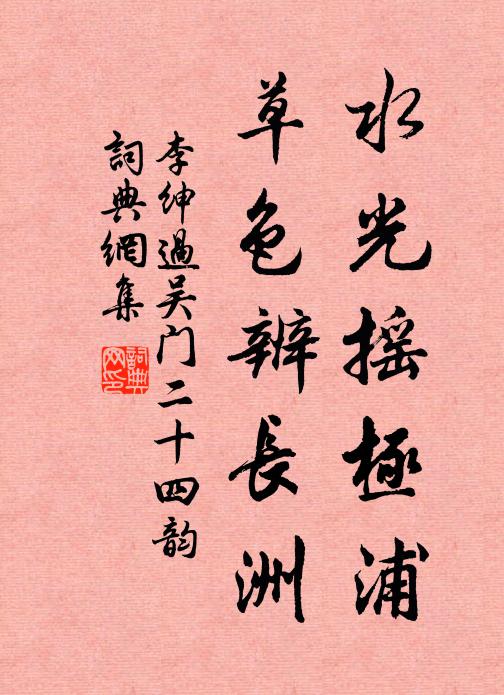 水光摇極浦
草色辨長洲
李紳過吴门二十四韵
詞典網集
詞典網印